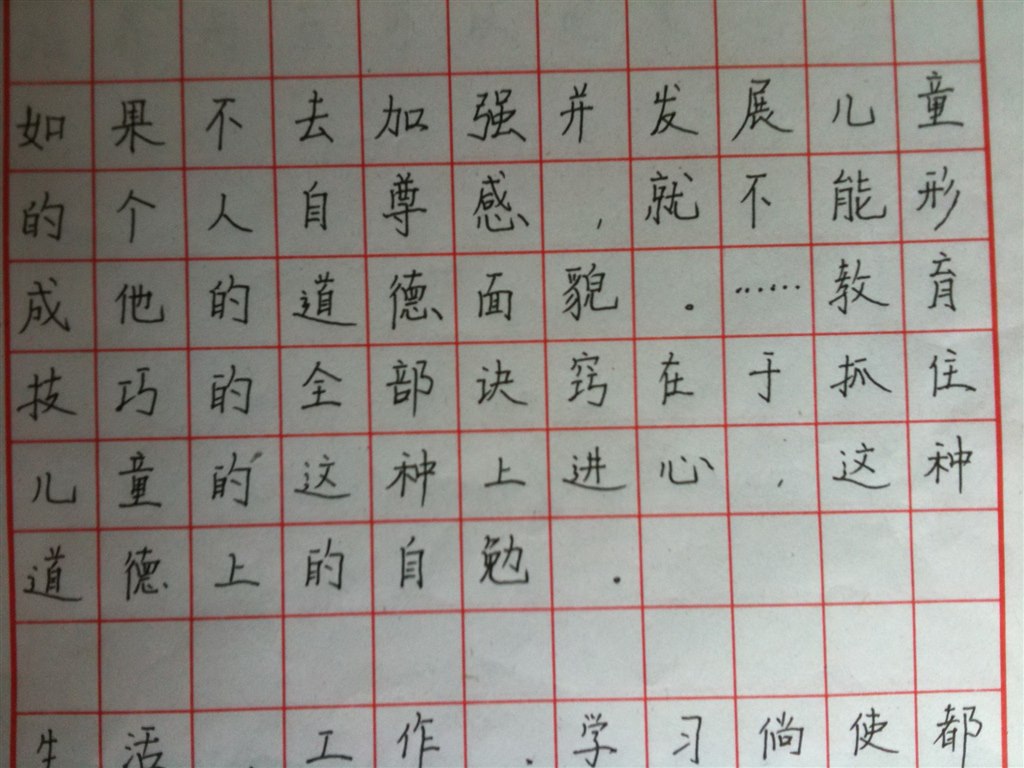 如果不去加强并发展儿童
的个人自尊感,就不能形
成他的道德面貌。……教育
技巧的全部诀窍在于抓住
儿童的这种上进心,这种
道德上的自勉.
生活、工作.学习倘使都